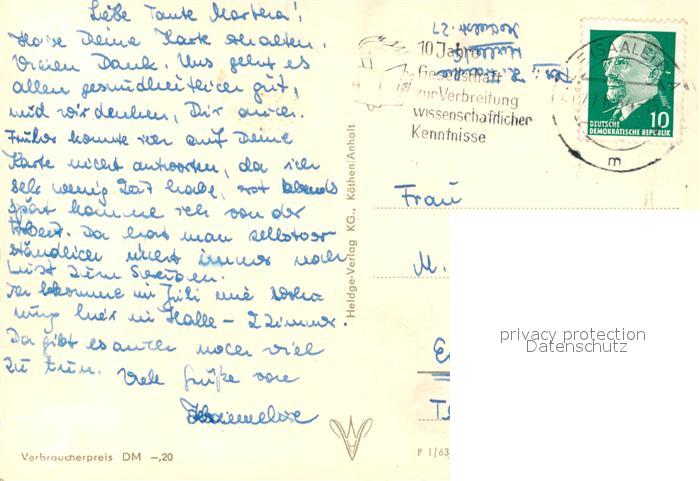 Liebe Tante Martha!
Habe Deine Karte erhalten.
Vielen Dank. Uns geht es
allen gesundheitlich gut,
und wir denken, Dir auch.
Früher konnte ich auf Deine
Karte nicht antworten, da ich
sehr wenig Zeit habe, erst abends
spät komme ich von der
Arbeit. Da hat man selbstver
ständlich nicht immer noch
Lust zum Schreiben.
Ich bekomme im Juli eine Woh-
nung hier in Halle – 2 Zimmer.
Da gibt es auch noch viel
zu tun. Viele Grüße von
Hannelore
Verbraucherpreis DM –,20
Heldge-Verlag KG., Köthen/Anhalt
P 1/63
10 Jahre
Gesellschaft
zur Verbreitung
wissenschaftlicher
Kenntnisse
(SAALE)
DEUTSCHE
DEMOKRATISCHE REPUBLIK
10
m
Frau
M.
privacy protection
Datenschutz